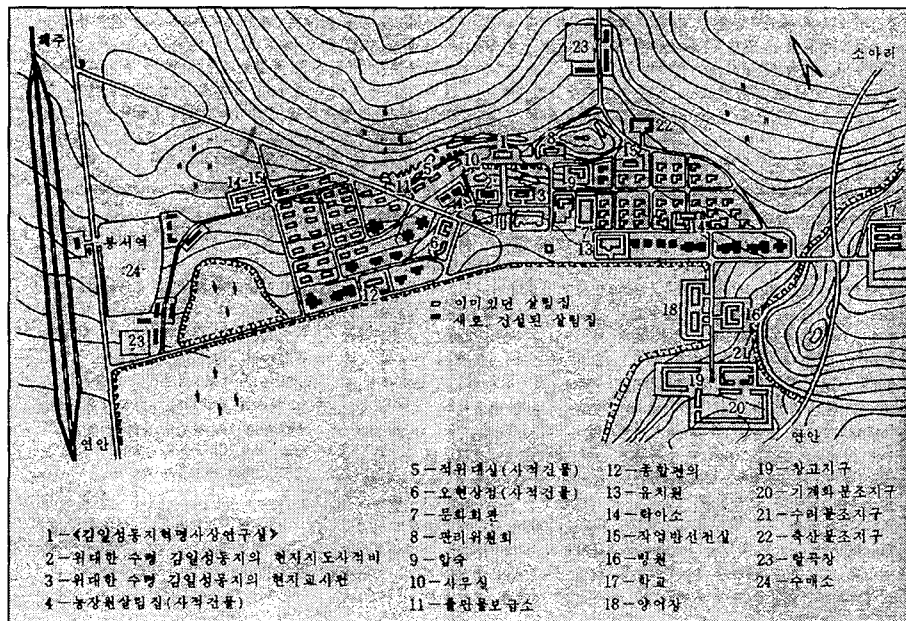 해주
소아리
봉서역
연안
연안
이미있던 살림집
새로 건설된 살림집
1—《김일성동지혁명사상연구실》
2—위대한 수령 김일성동지의 현지지도사적비
3—위대한 수령 김일성동지의 현지교시판
4—농장원살림집(사적건물)
5—적위대실(사적건물)
6—오현상점(사적건물)
7—문화회관
8—관리위원회
9—합숙
10—사무실
11—출판물보급소
12—종합편의
13—유치원
14—탁아소
15—작업반선전실
16—병원
17—학교
18—양어장
19—창고지구
20—기계화분조지구
21—수리분조지구
22—축산분조지구
23—탈곡장
24—수매소